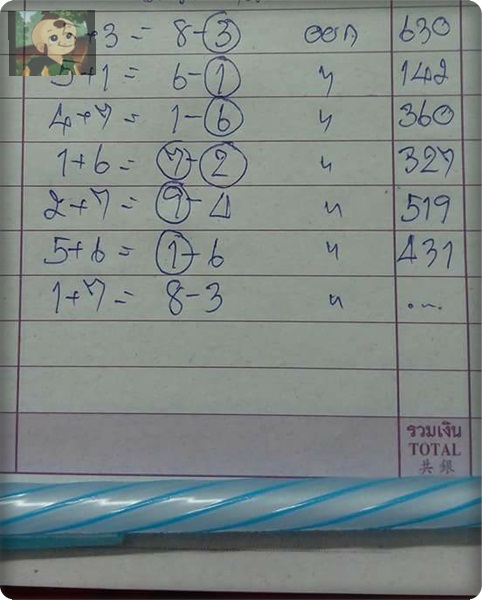 +3 = 8-3 ออก 630
5+1 = 6-1 " 142
4+7 = 1-6 " 360
1+6 = 7-2 " 327
2+7 = 9-4 " 519
5+6 = 1-6 " 431
1+7 = 8-3 " ...
รวมเงิน
TOTAL
共銀